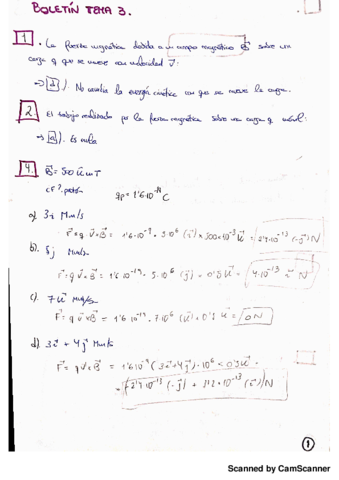 BOLETÍN TEMA 3.
1. La fuerza magnética debida a un campo magnético B sobre una
carga q que se mueve con velocidad v:
→ d). No varía la energía cinética con que se mueve la carga.
2. El trabajo realizado por la fuerza magnética sobre una carga q móvil:
→ a). Es nulo
4. B = 500 k mT
¿F? protón qp = 1'6·10^-19 C
a) 3i Mm/s
F = q·v×B =
b). 5j Mm/s
F = q v×B = 1'6·10^-19 · 5·10^6 (j) × 0'5 k = 4·10^-13 i N
c). 7k Mm/s
F = q v×B = 1'6·10^-19 · 7·10^6 (k) × 0'5 k = 0 N
d). 3i + 4j Mm/s
F = q v×B = 1'6·10^-19 (3i+4j)·10^6 × 0'5 k =
1
Scanned by CamScanner